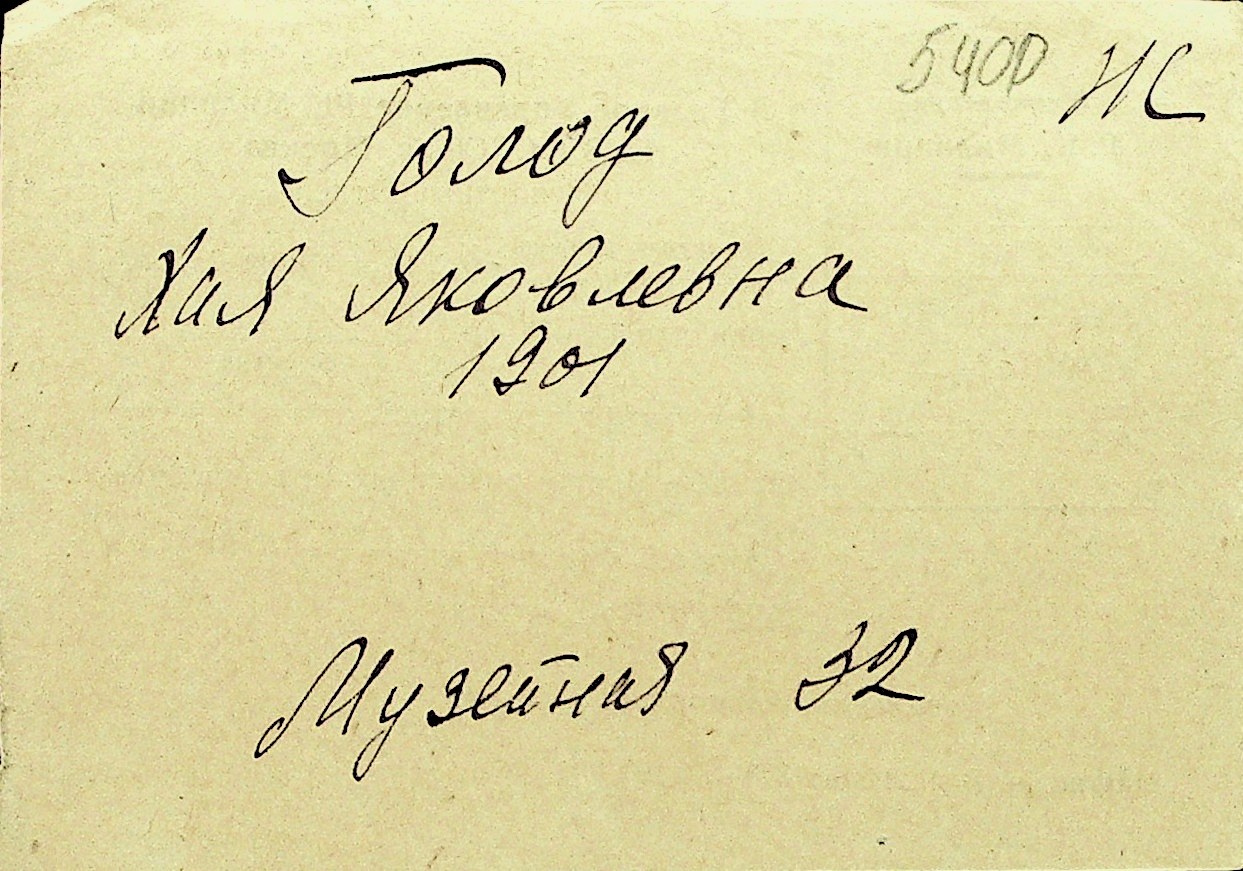 5400 НС
Голод
Хая Яковлевна
1901
Музейная 32